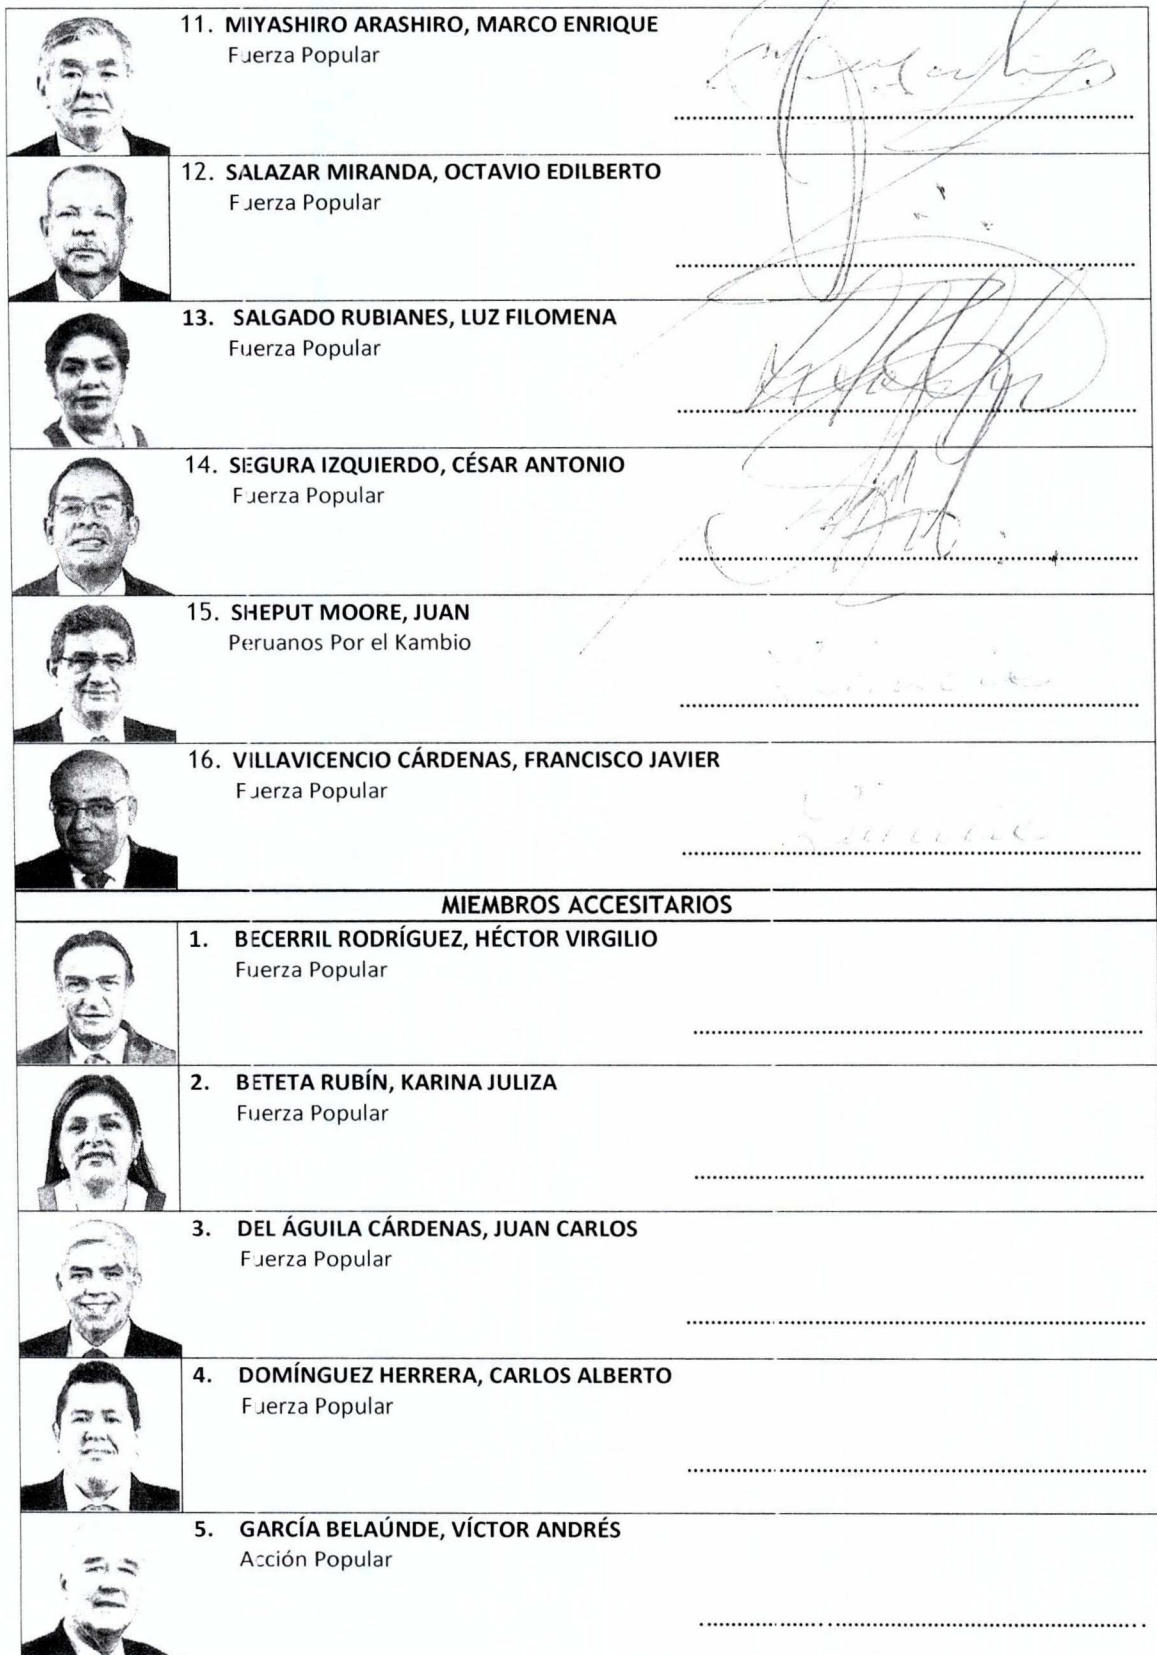 11. MIYASHIRO ARASHIRO, MARCO ENRIQUE
Fuerza Popular
12. SALAZAR MIRANDA, OCTAVIO EDILBERTO
Fuerza Popular
13. SALGADO RUBIANES, LUZ FILOMENA
Fuerza Popular
14. SEGURA IZQUIERDO, CÉSAR ANTONIO
Fuerza Popular
15. SHEPUT MOORE, JUAN
Peruanos Por el Kambio
16. VILLAVICENCIO CÁRDENAS, FRANCISCO JAVIER
Fuerza Popular
MIEMBROS ACCESITARIOS
1. BECERRIL RODRÍGUEZ, HÉCTOR VIRGILIO
Fuerza Popular
2. BETETA RUBÍN, KARINA JULIZA
Fuerza Popular
3. DEL ÁGUILA CÁRDENAS, JUAN CARLOS
Fuerza Popular
4. DOMÍNGUEZ HERRERA, CARLOS ALBERTO
Fuerza Popular
5. GARCÍA BELAÚNDE, VÍCTOR ANDRÉS
Acción Popular